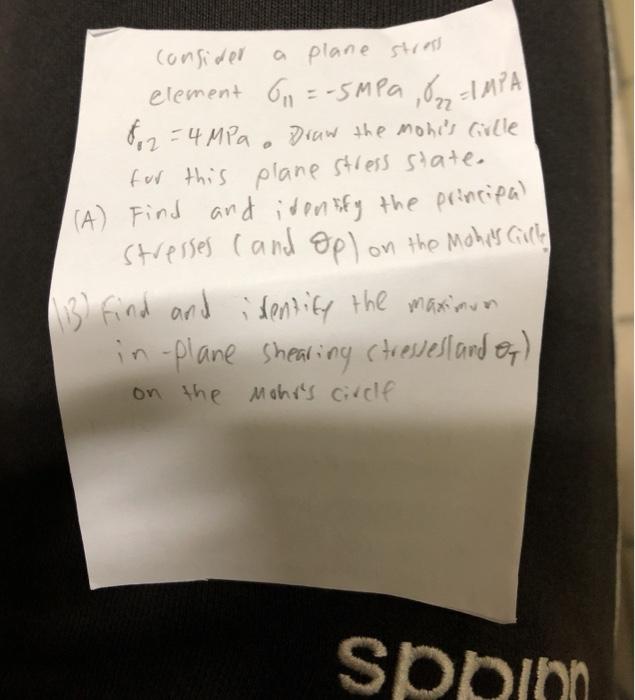 Consider a plane stress
element σ11 = -5MPa, σ22 = 1MPA
σ12 = 4MPa. Draw the Mohr's Circle
for this plane stress state.
(A) Find and identify the principal
stresses (and θp) on the Mohr's Circle.
(B) Find and identify the maximum
in-plane shearing stresses(and θτ)
on the Mohr's circle